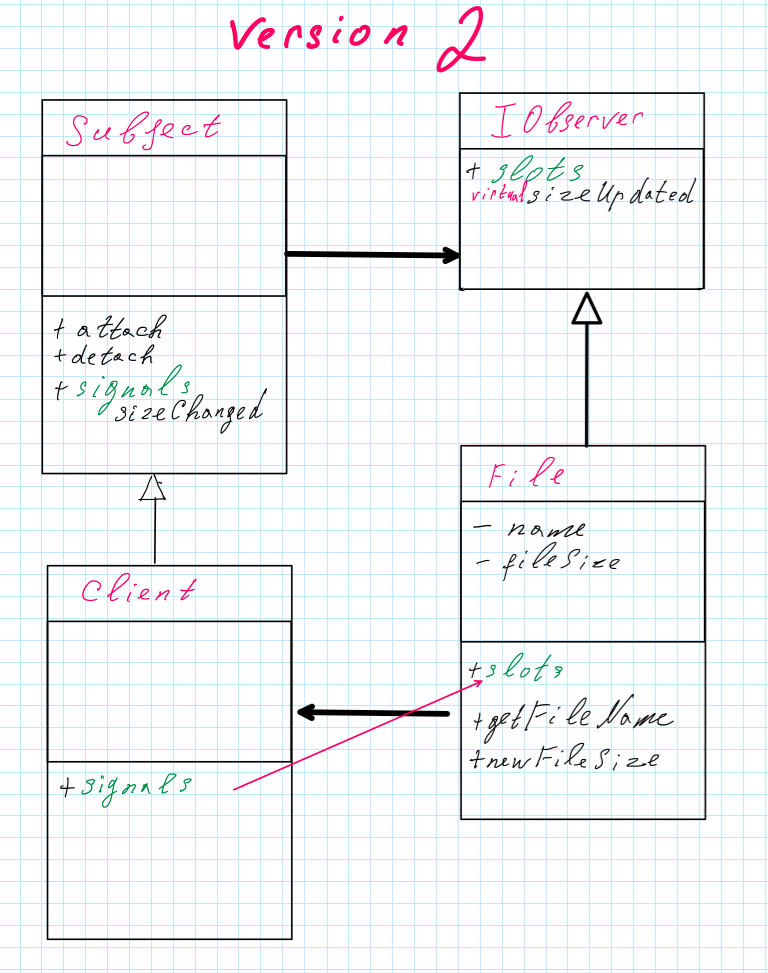 Version 2
Subject
+ attach
+ detach
+ signals
sizeChanged
IObserver
+ slots
virtual sizeUpdated
Client
+ signals
File
- name
- fileSize
+ slots
+ getFileName
+ newFileSize